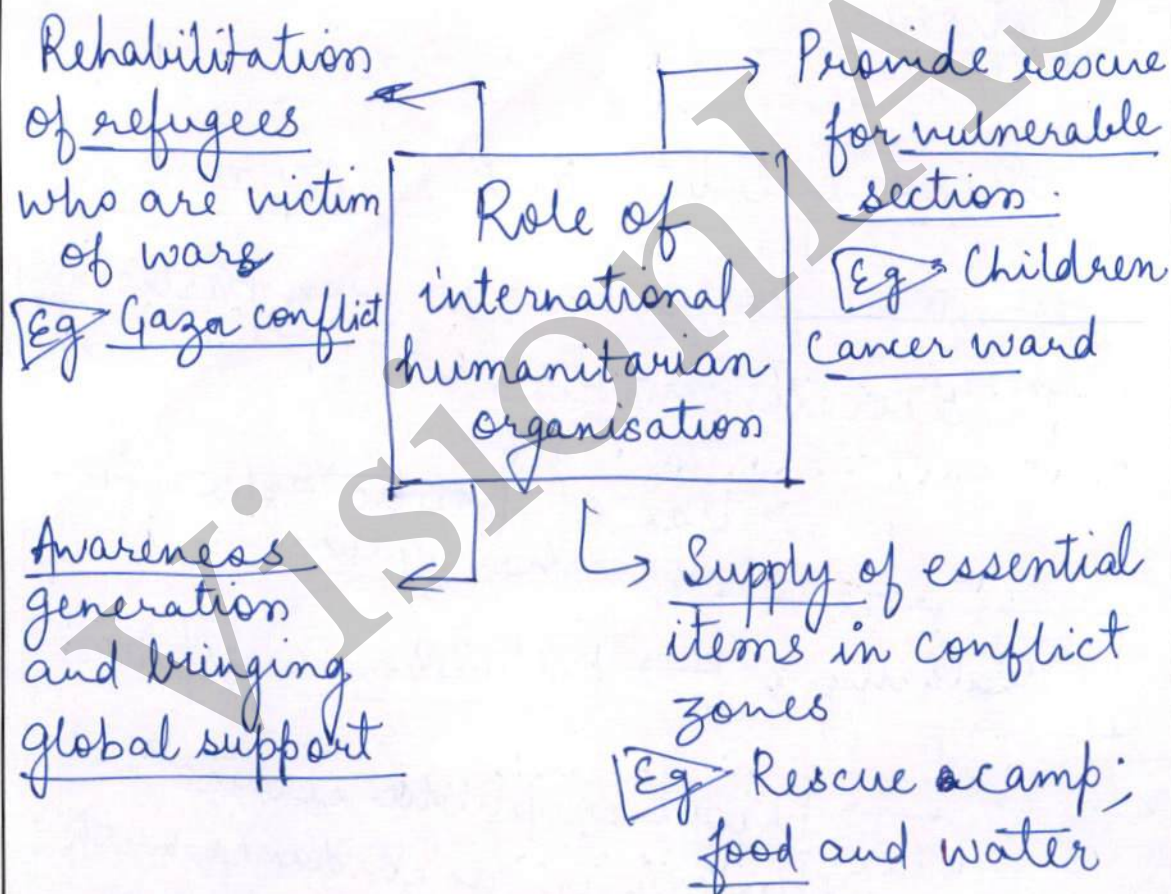 Rehabilitation
of refugees
who are victim
of wars
Eg Gaza conflict
Role of
international
humanitarian
organisation
Provide rescue
for vulnerable
section.
Eg Children
cancer ward
Awareness
generation
and bringing
global support
Supply of essential
items in conflict
zones
Eg Rescue camp;
food and water
VisionIAS